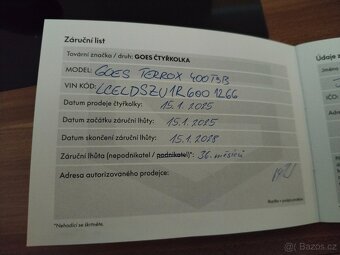 Záruční list
Tovární značka / druh: GOES ČTYŘKOLKA
MODEL: GOES TERROX 400T3B
VIN KÓD: LCELDSZU1R6001266
Datum prodeje čtyřkolky: 15.1.2025
Datum začátku záruční lhůty: 15.1.2025
Datum skončení záruční lhůty: 15.1.2028
Záruční lhůta (nepodnikatel / podnikatel)*: 36 měsíců
Adresa autorizovaného prodejce:
*Nehodící se škrtněte.
Údaje z
IČO:
bazos.cz